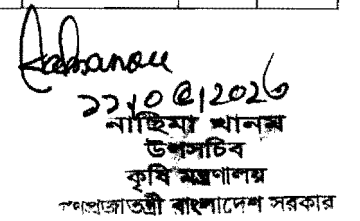 ২২,০৫,2026
নাছিমা খানম
উপসচিব
কৃষি মন্ত্রণালয়
গণপ্রজাতন্ত্রী বাংলাদেশ সরকার